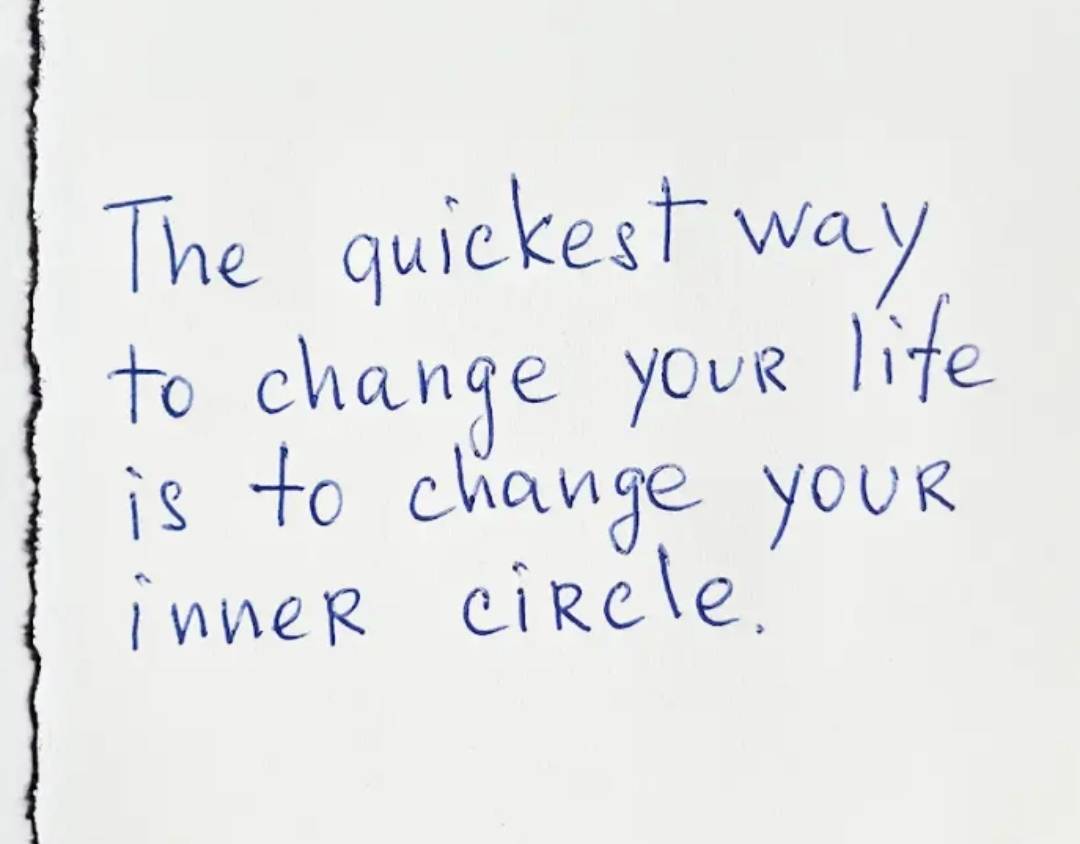 The quickest way
to change youR life
is to change youR
inneR ciRcle.